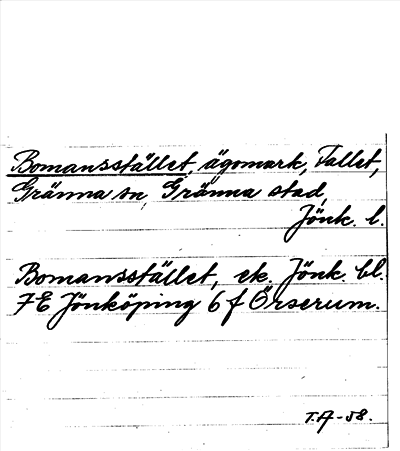 Bomansstället, ägomark, Tallet,
Gränna sn, Gränna stad,
Jönk. l.
Bomansstället, ek. Jönk. bl.
7E Jönköping 6 f Örserum.
T.A-58.